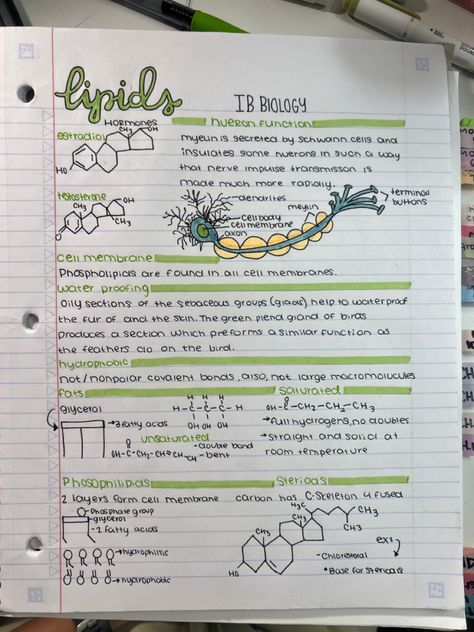 lipids
IB BIOLOGY
HORMONES
estradiol
CH₃
OH
HO
nueron function
myelin is secreted by schwann cells and
insulates some nuerons in such a way
that nerve impulse transmisson is
made much more rapidly.
testosterone
CH₃
OH
CH₃
O
dendrites
cell body
cell membrane
axon
meylin
terminal
buttons
cell membrane
Phospholipids are found in all cell membranes.
water proofing
Oily sections of the sebaceous groups (glads) help to waterproof
the fur of and the skin. The green plend gland of birds
produces a section which preforms a similar function as
the feathers do on the bird.
hydrophobic
not/nonpolar covalent bonds, also, not large macromolucules
fats
glycerol
→3 fatty acids
H H H
H-C-C-C-H
OH OH OH
unsaturated
O
OH-C-CH₂-CH=CH₂
-double bond
-bent
saturated
O
OH-C-CH₂-CH₂-CH₃
→full hydrogens, no doubles
→straight and solid at
room temperature
Phosphilipids
2 layers form cell membrane
Phosphate group
glycerol
-2 fatty acids
→hydrophillic
→hydrophobic
Steriods
carbon has C-skeleton 4 fused
H₃C
CH₃
CH₃
CH₃
CH₃
HO
ex:
-Chloresteral
*Base for steriods